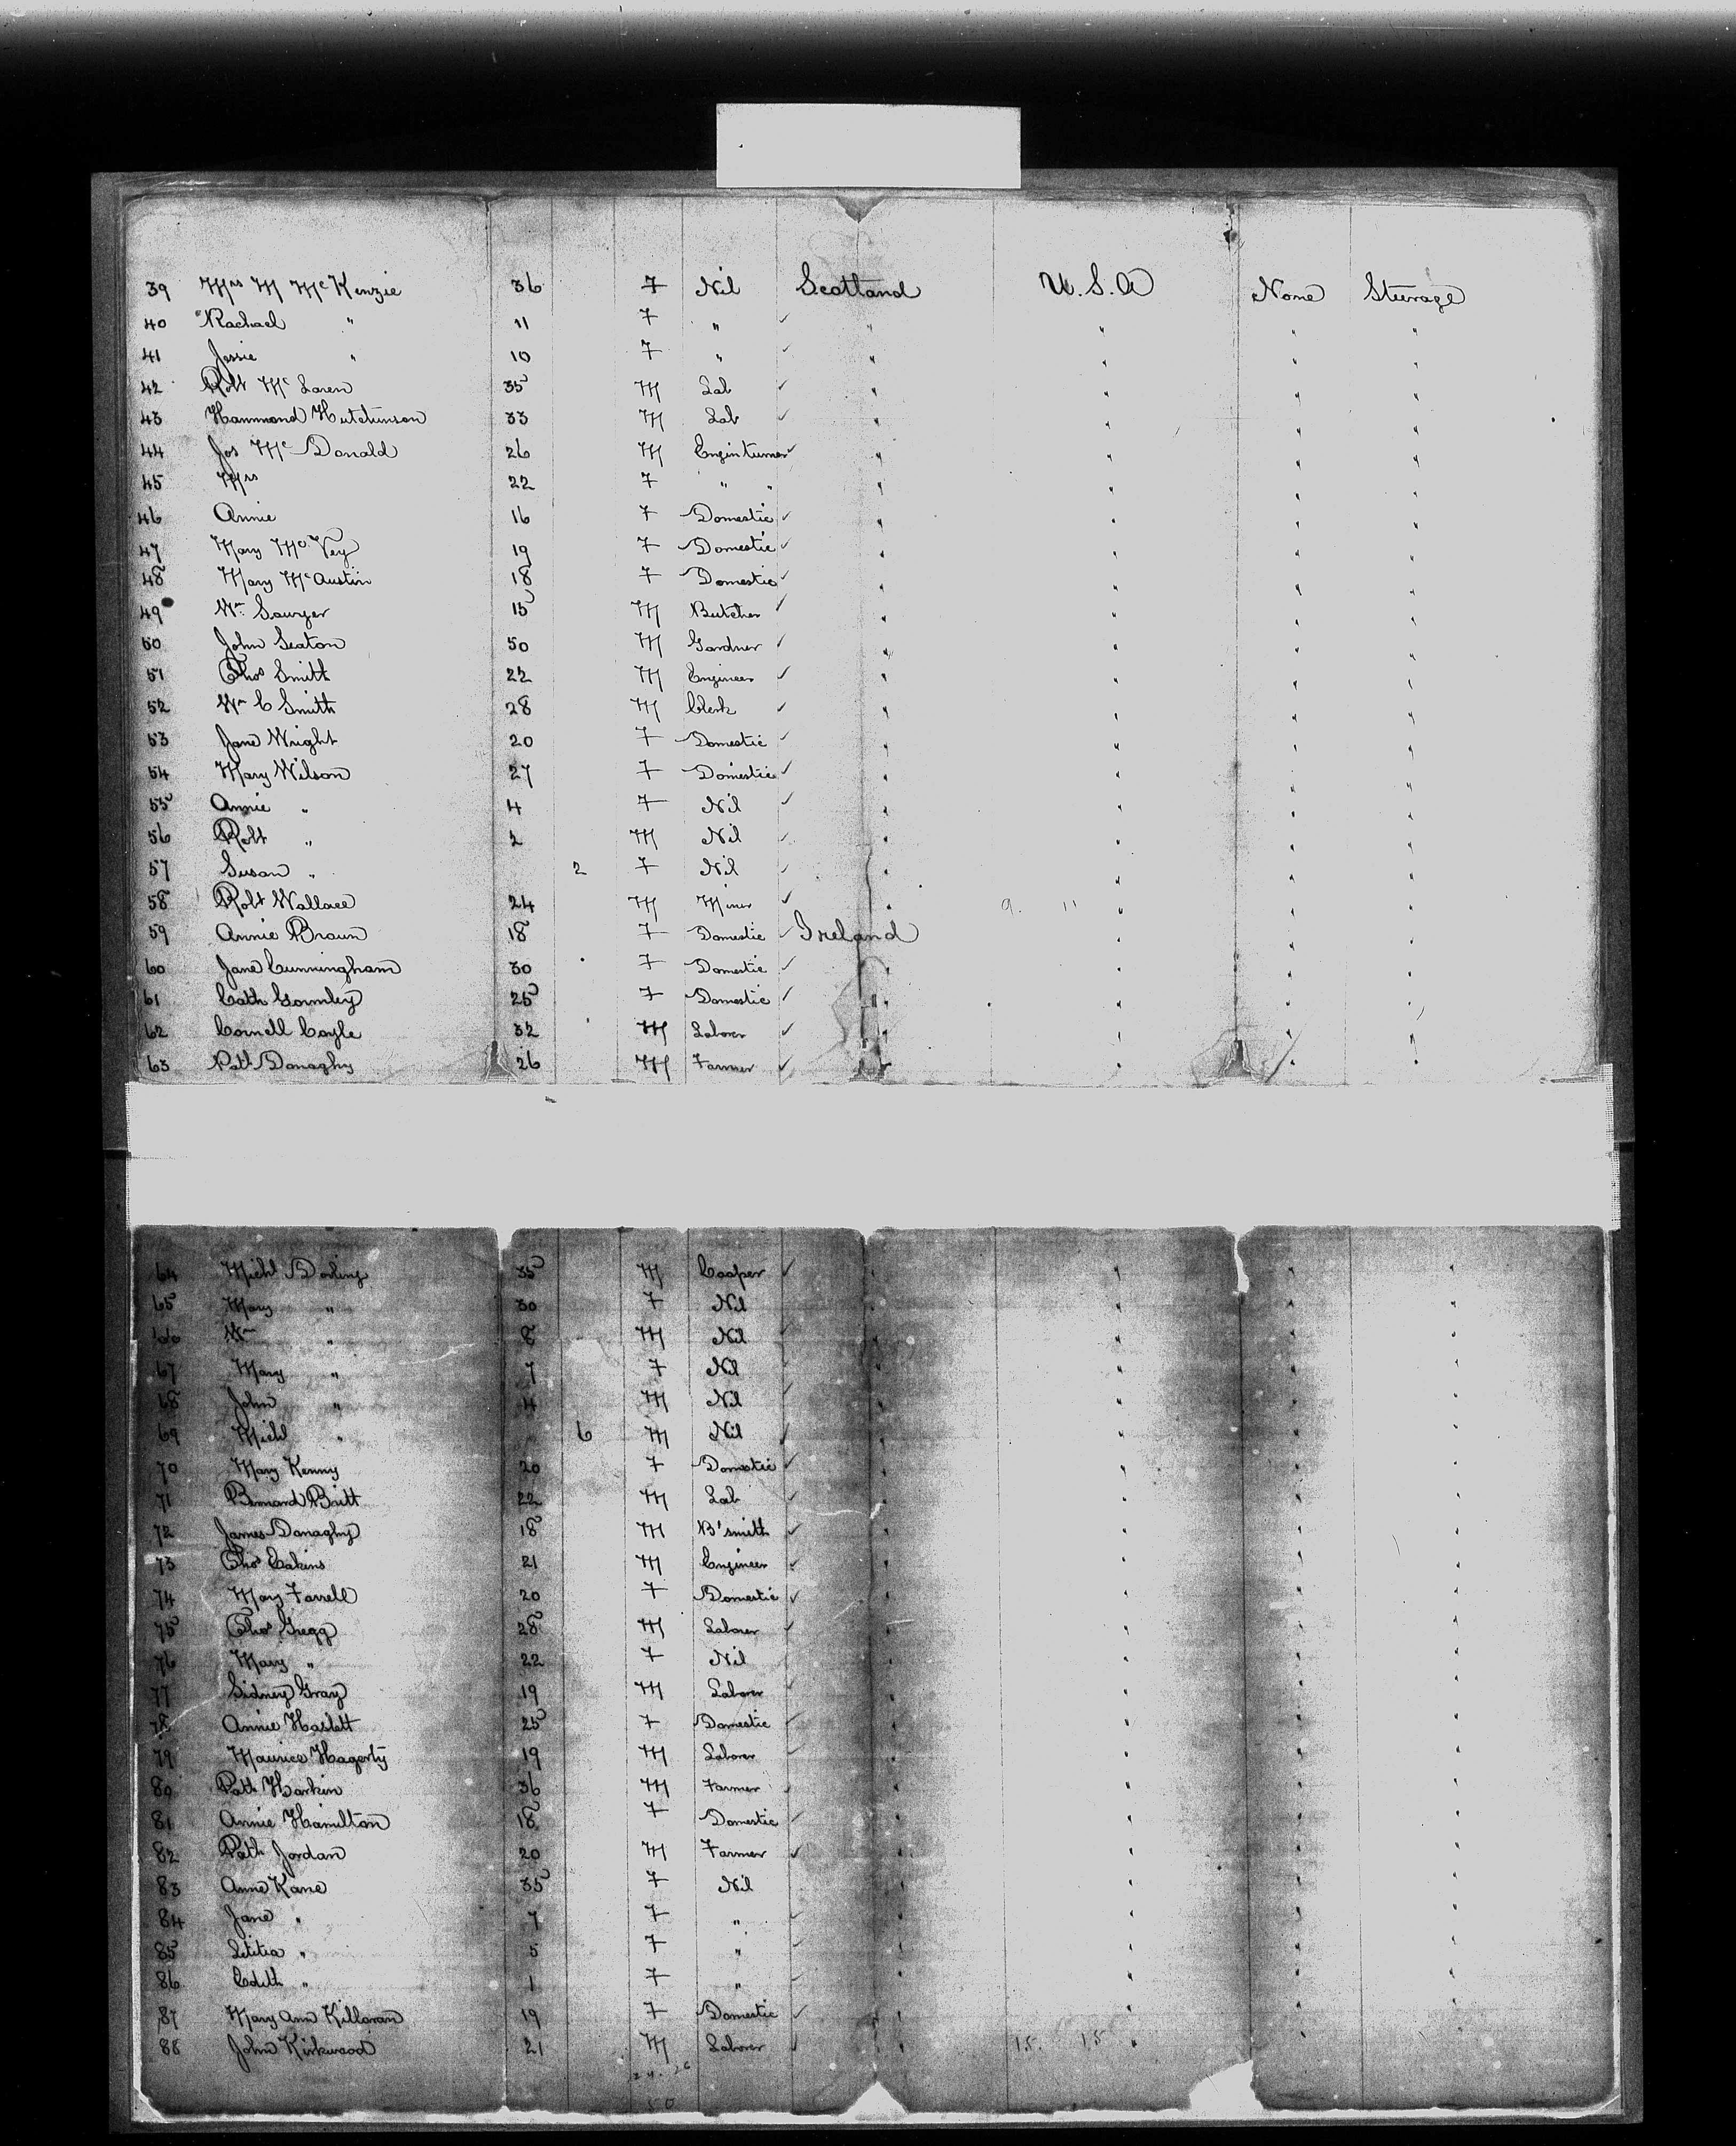 39 Mrs M McKenzie 36 F Nil Scotland U.S.A None Steerage
40 Rachael " 11 F " " " " "
41 Jessie " 10 F " " " " "
42 Robt McLaren 35 M Lab " " " "
43 Hammond Hutchinson 33 M Lab " " " "
44 Jos McDonald 26 M " " " "
45 Mrs 22 F " " " " " "
46 Annie 16 F Domestic " " " "
47 Mary McVey 19 F Domestic " " " "
48 Mary McAustin 18 F Domestic " " " "
49 Wm Sawyer 15 M Butcher " " " "
50 John Seaton 50 M Gardner " " " "
51 Thos Smith 22 M Engineer " " " "
52 Wm C Smith 28 M Clerk " " " "
53 Jane Wright 20 F Domestic " " " "
54 Mary Wilson 27 F Domestic " " " "
55 Annie " 4 F Nil " " " "
56 Robt " 2 M Nil " " " "
57 Susan " 2 F Nil " " " "
58 Robt Wallace 24 M Miner " 9. 11 " " "
59 Annie Brown 18 F Domestic Ireland " " "
60 Jane Cunningham 30 F Domestic " " " "
61 Cath Gormley 25 F Domestic " " " "
62 Connell Coyle 32 M Laborer " " " "
63 Patk Donaghy 26 M Farmer " " " "
64 Michl 35 M Cooper " " " "
65 Mary " 30 F Nil " " " "
66 Wm " 8 M Nil " " " "
67 Mary " 7 F Nil " " " "
68 John " 4 M Nil " " " "
69 Michl " 6 M Nil " " " "
70 Mary Kenny 20 F Domestic " " " "
71 Bernard Britt 22 M Lab " " " "
72 James Donaghy 18 M B'smith " " " "
73 Thos Eakins 21 M Engineer " " " "
74 Mary Farrell 20 F Domestic " " " "
75 Thos Gregg 28 M Laborer " " " "
76 Mary " 22 F Nil " " " "
77 Sidney Gray 19 M Laborer " " " "
78 Annie Haslett 25 F Domestic " " " "
79 Maurice Hagerty 19 M Laborer " " " "
80 Patk Harkin 36 M Farmer " " " "
81 Annie Hamilton 18 F Domestic " " " "
82 Patk Jordan 20 M Farmer " " " "
83 Anne Kane 35 F Nil " " " "
84 Jane " 7 F " " " " "
85 Letitia " 5 F " " " " "
86 Edith " 1 F " " " " "
87 Mary Ann Killoran 19 F Domestic " " " "
88 John Kirkwood 21 M Laborer " 15. 15 " " "
24. 26
50